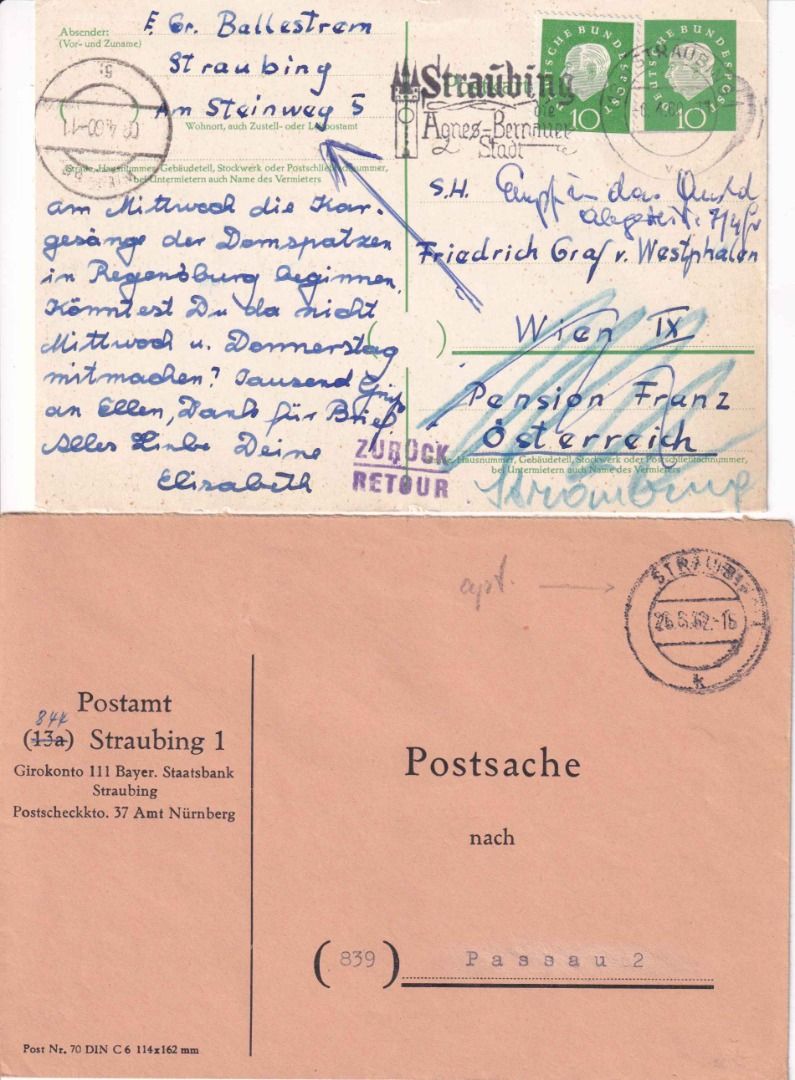 Absender:
(Vor- und Zuname)
E. Gr. Ballestrem
Straubing
Am Steinweg 5
Wohnort, auch Zustell- oder Leitpostamt
Straße, Hausnummer, Gebäudeteil, Stockwerk oder Postschließfachnummer,
bei Untermietern auch Name des Vermieters
am Mittwoch die Kar-
gesänge der Domspatzen
in Regensburg beginnen.
Könntest Du da nicht
Mittwoch u. Donnerstag
mitmachen? Tausend Grüße
an Ellen, Dank für Brief
Alles Liebe Deine
Elisabeth
DEUTSCHE BUNDESPOST
10
DEUTSCHE BUNDESPOST
10
Straubing
die
Agnes-Bernauer-
Stadt
STRAUBING
S.H.
Friedrich Graf v. Westphalen
Wien IX
Pension Franz
Österreich
Hausnummer, Gebäudeteil, Stockwerk oder Postschließfachnummer,
bei Untermietern auch Name des Vermieters
ZURÜCK
RETOUR
Straubing
apt.
STRAUBING 1
26.6.62.-16
k
Postamt
844
(13a) Straubing 1
Girokonto 111 Bayer. Staatsbank
Straubing
Postscheckkto. 37 Amt Nürnberg
Postsache
nach
(839) Passau 2
Post Nr. 70 DIN C 6 114x162 mm